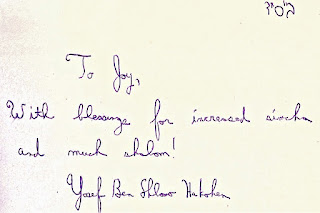 בס"ד
To Joy,
With blessings for increased simcha
and much shalom!
Yosef Ben Shlomo Hakohen